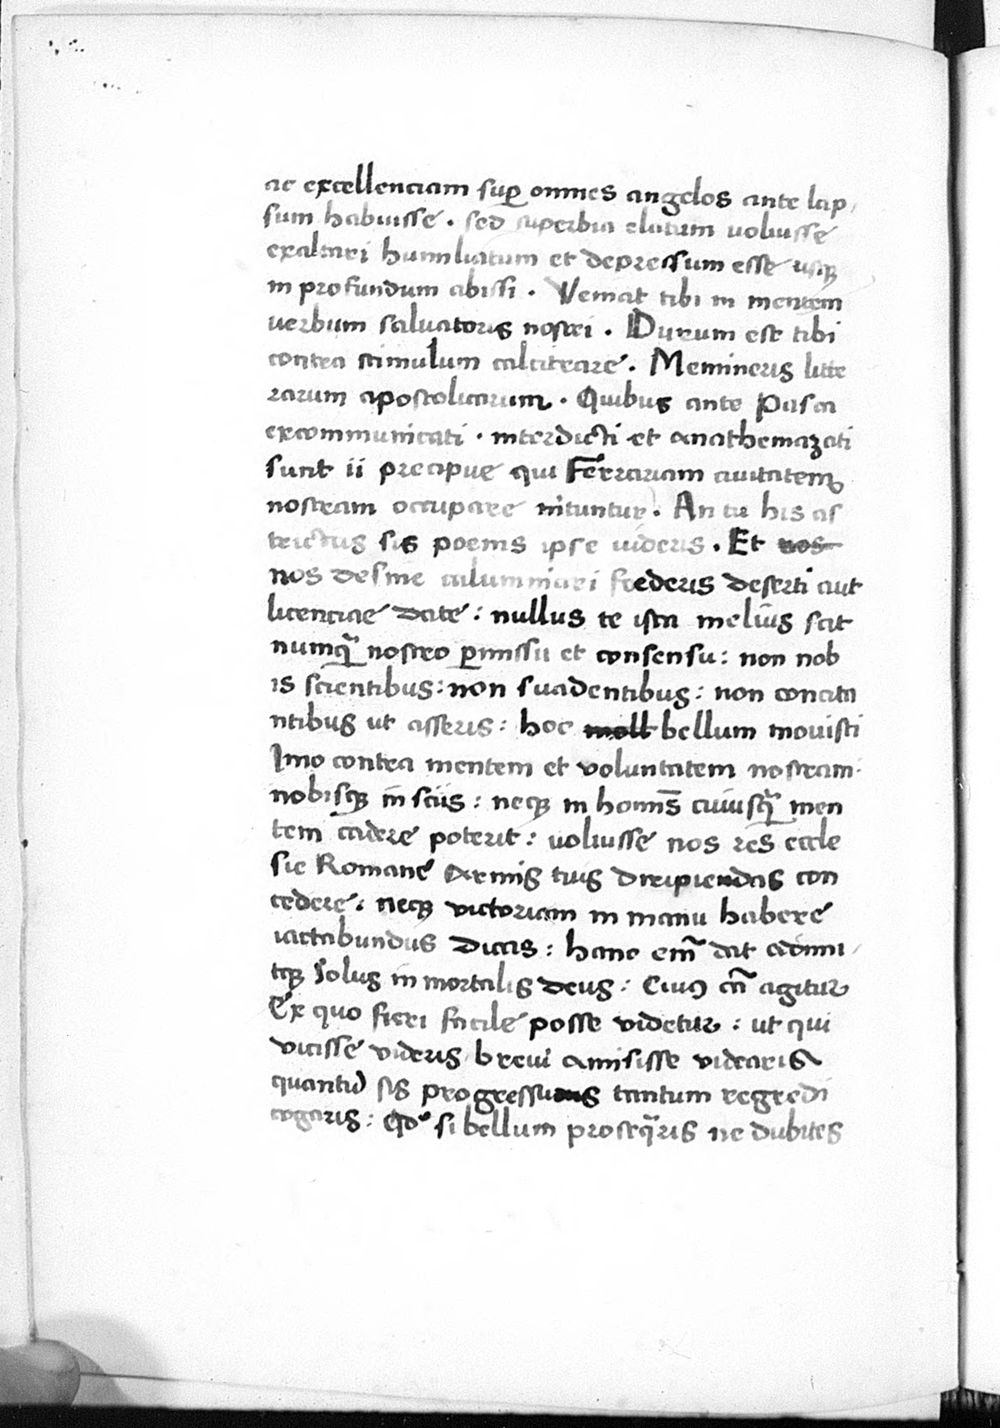 ac excellenciam sup̱ omnes angelos ante lap
sum habuisse . sed superbia elatum uoluisse
exaltari humiliatum et depressum esse usqꝫ
in profundum abissi . Veniat tibi in mentem
uerbum saluatoris nostri . Durum est tibi
contra stimulum calcitrare . Memineris litte
rarum apostolicarum . Quibus ante Pasca
excommunicati . interdicti et anathemazati
sunt ii precipue qui Ferrariam ciuitatem
nostram occupare nituntur . An tu his as
trictus sis poenis ipse uideris . Et nos
nos desine calumniari foederis deserti aut
licenciae date : nullus te ista melius scit
numq̃ nostro p̱missu et consensu : non nob
is scientibus : non suadentibus : non concita
ntibus ut asseris : hoc moll bellum mouisti
Imo contra mentem et voluntatem nostram
nobisqꝫ insciis : neqꝫ in homis̄ cuiusq̃ men
tem cadere poterit : uoluisse nos res̄ eccle
sie Romane Armis tuis diripiendas con
cedere : neqꝫ victoriam in manu habere
iactabundus dicas : hanc em̄ dat adimi
tqꝫ solus immortalis deus : Cuiꝯ cā agitur
Ex quo fieri facile posse videtur : ut qui
vicisse videris brevi amisisse videaris
quantū sis progressus tantum regredi
cogaris : Qđ si bellum proseq̃ris ne dubites